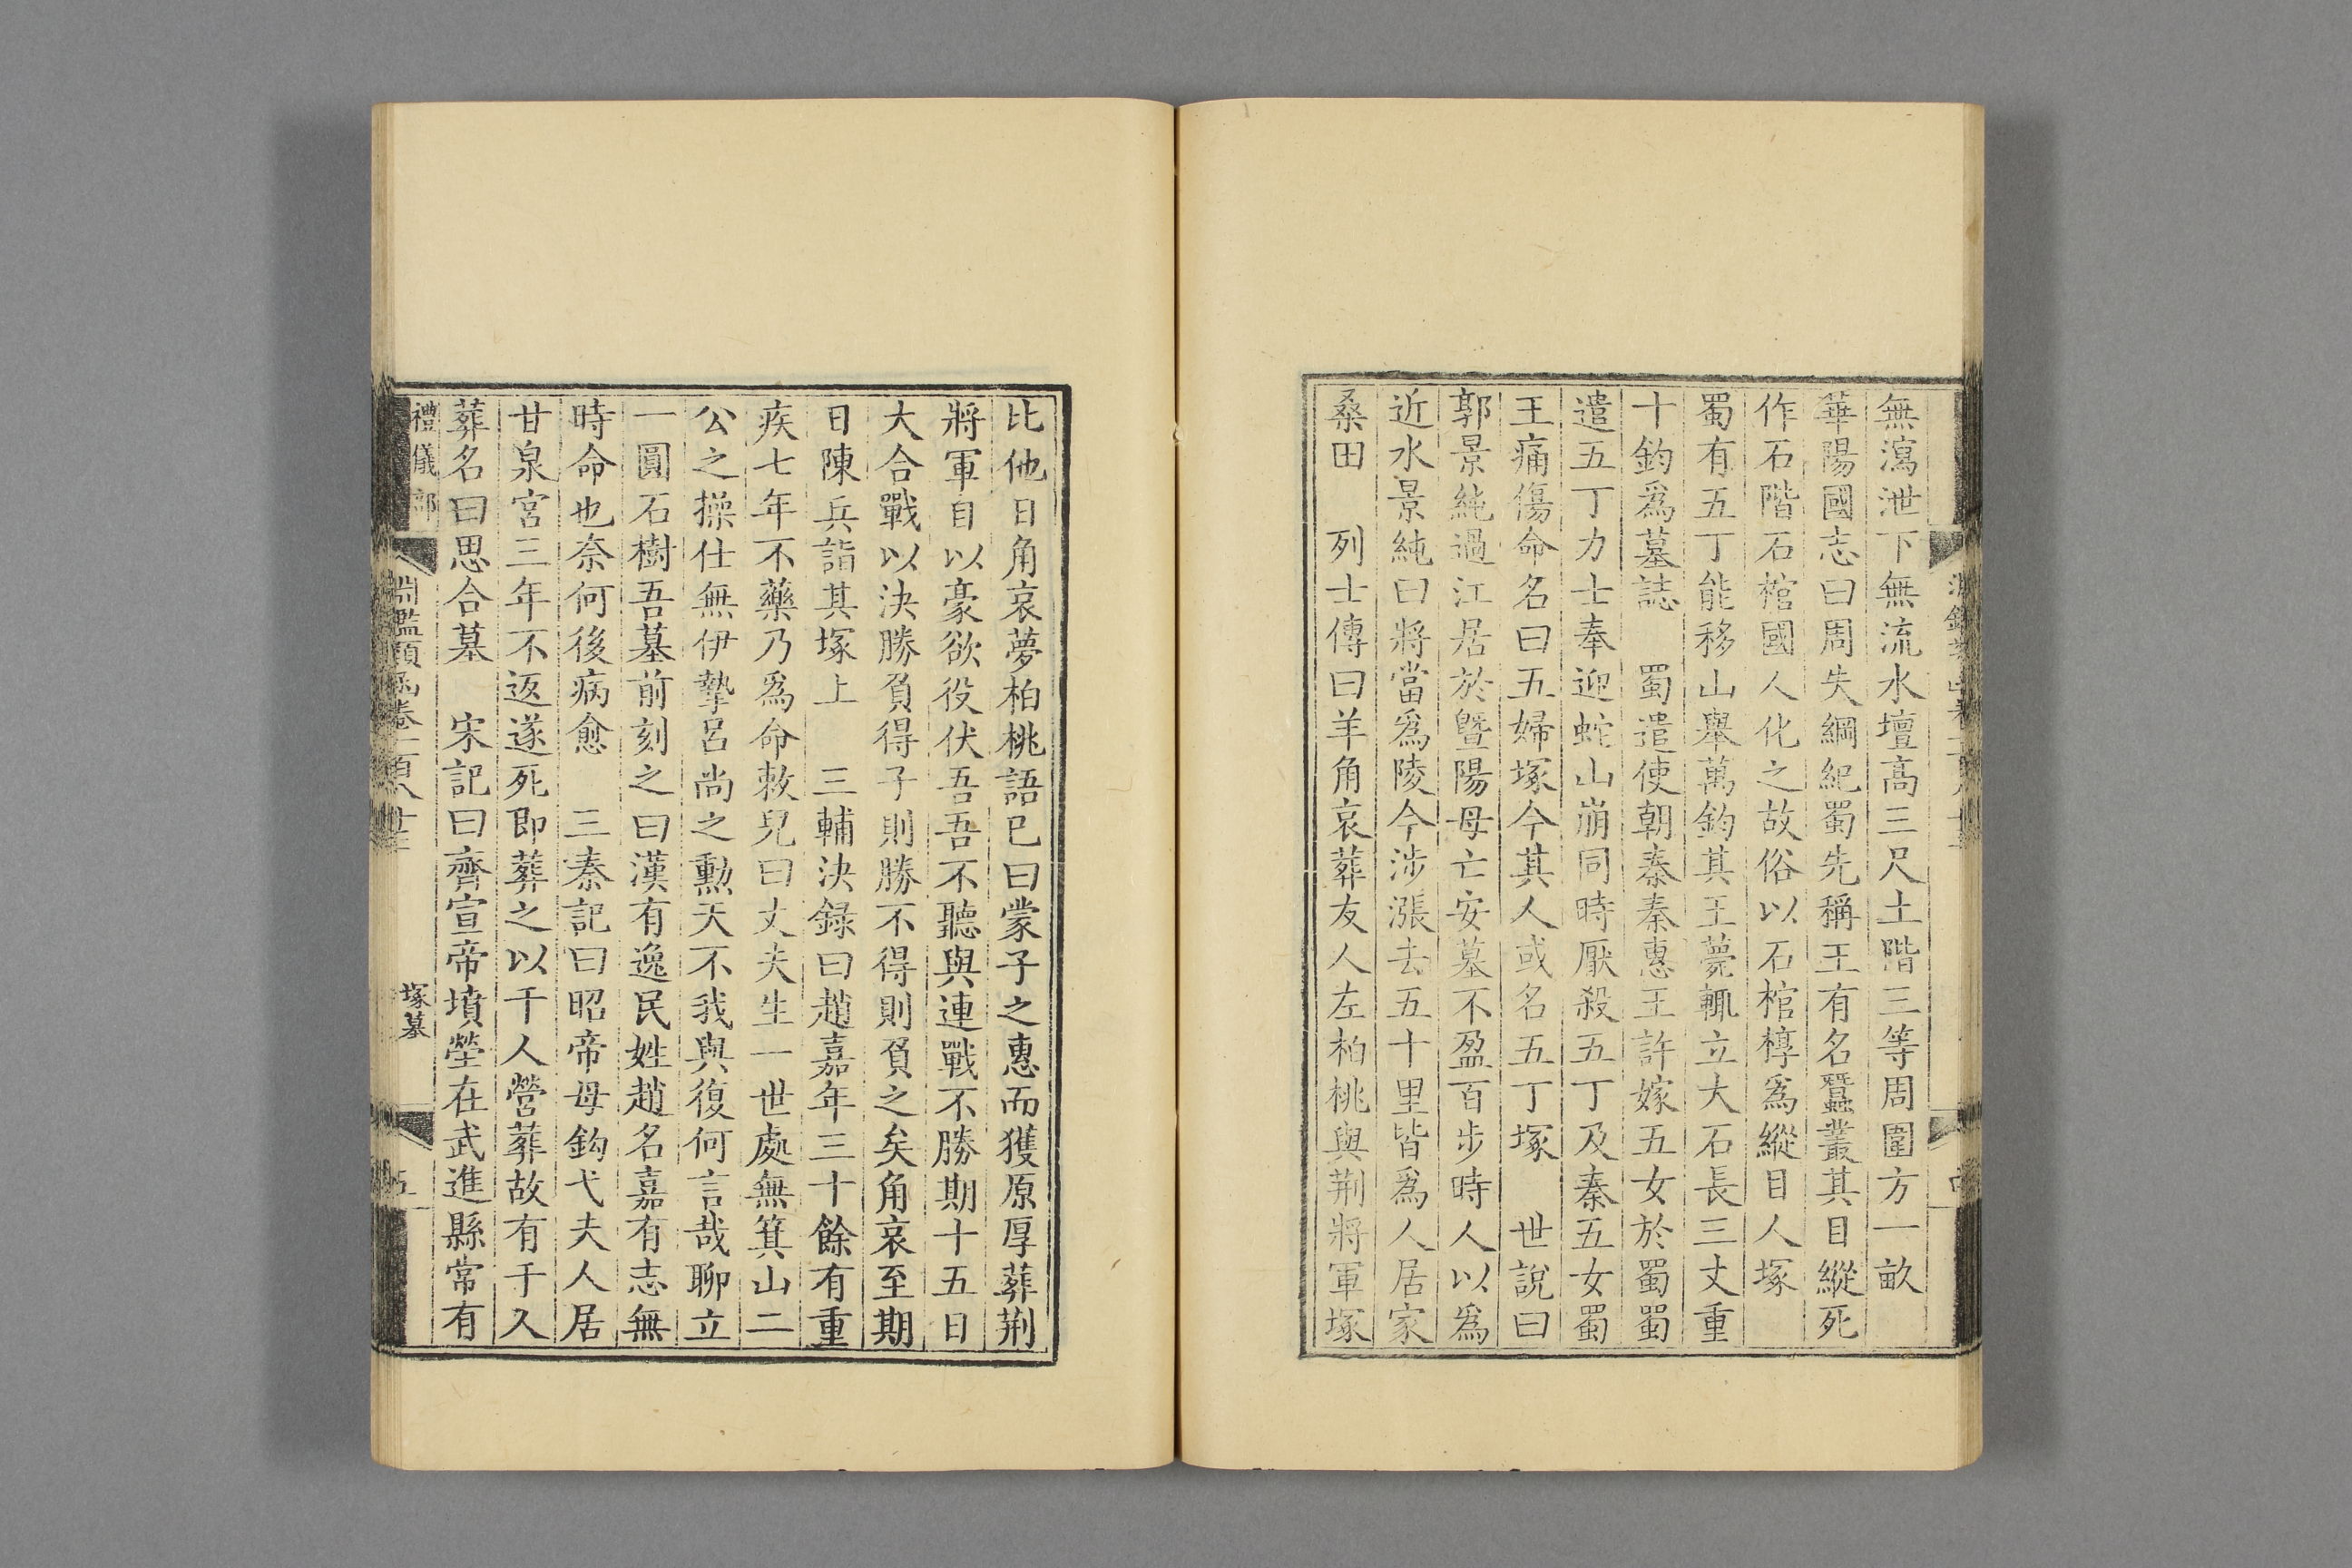 無瀉泄下無流水壇高三尺土階三等周圍方一畝
華陽國志曰周失綱紀蜀先稱王有名蠶叢其目縱死
作石階石棺國人化之故俗以石棺椁爲縱目人塚
蜀有五丁能移山舉萬鈞其王薨輒立大石長三丈重
十鈞爲墓誌　蜀遣使朝秦秦惠王許嫁五女於蜀蜀
遣五丁力士奉迎蛇山崩同時厭殺五丁及秦五女蜀
王痛傷命名曰五婦塚今其人或名五丁塚　世說曰
郭景純過江居於曁陽母亡安墓不盈百步時人以爲
近水景純曰將當爲陵今涉漲去五十里皆爲人居家
桑田　列士傳曰羊角哀葬友人左柏桃與荆將軍塚
比他日角哀夢柏桃語已曰蒙子之惠而獲原厚葬荆
將軍自以豪欲役伏吾吾不聽與連戰不勝期十五日
大合戰以決勝負得子則勝不得則負之矣角哀至期
日陳兵詣其塚上　三輔決録曰趙嘉年三十餘有重
疾七年不藥乃爲命敕兒曰丈夫生一世處無箕山二
公之操仕無伊摯呂尚之勲天不我與復何言哉聊立
一圓石樹吾墓前刻之曰漢有逸民姓趙名嘉有志無
時命也奈何後病愈　三秦記曰昭帝母鈎弋夫人居
甘泉宮三年不返遂死即葬之以千人營葬故有于久
葬名曰思合墓　宋記曰齊宣帝墳塋在武進縣常有
禮儀部
淵鑑類函卷一百八十三
塚墓
五